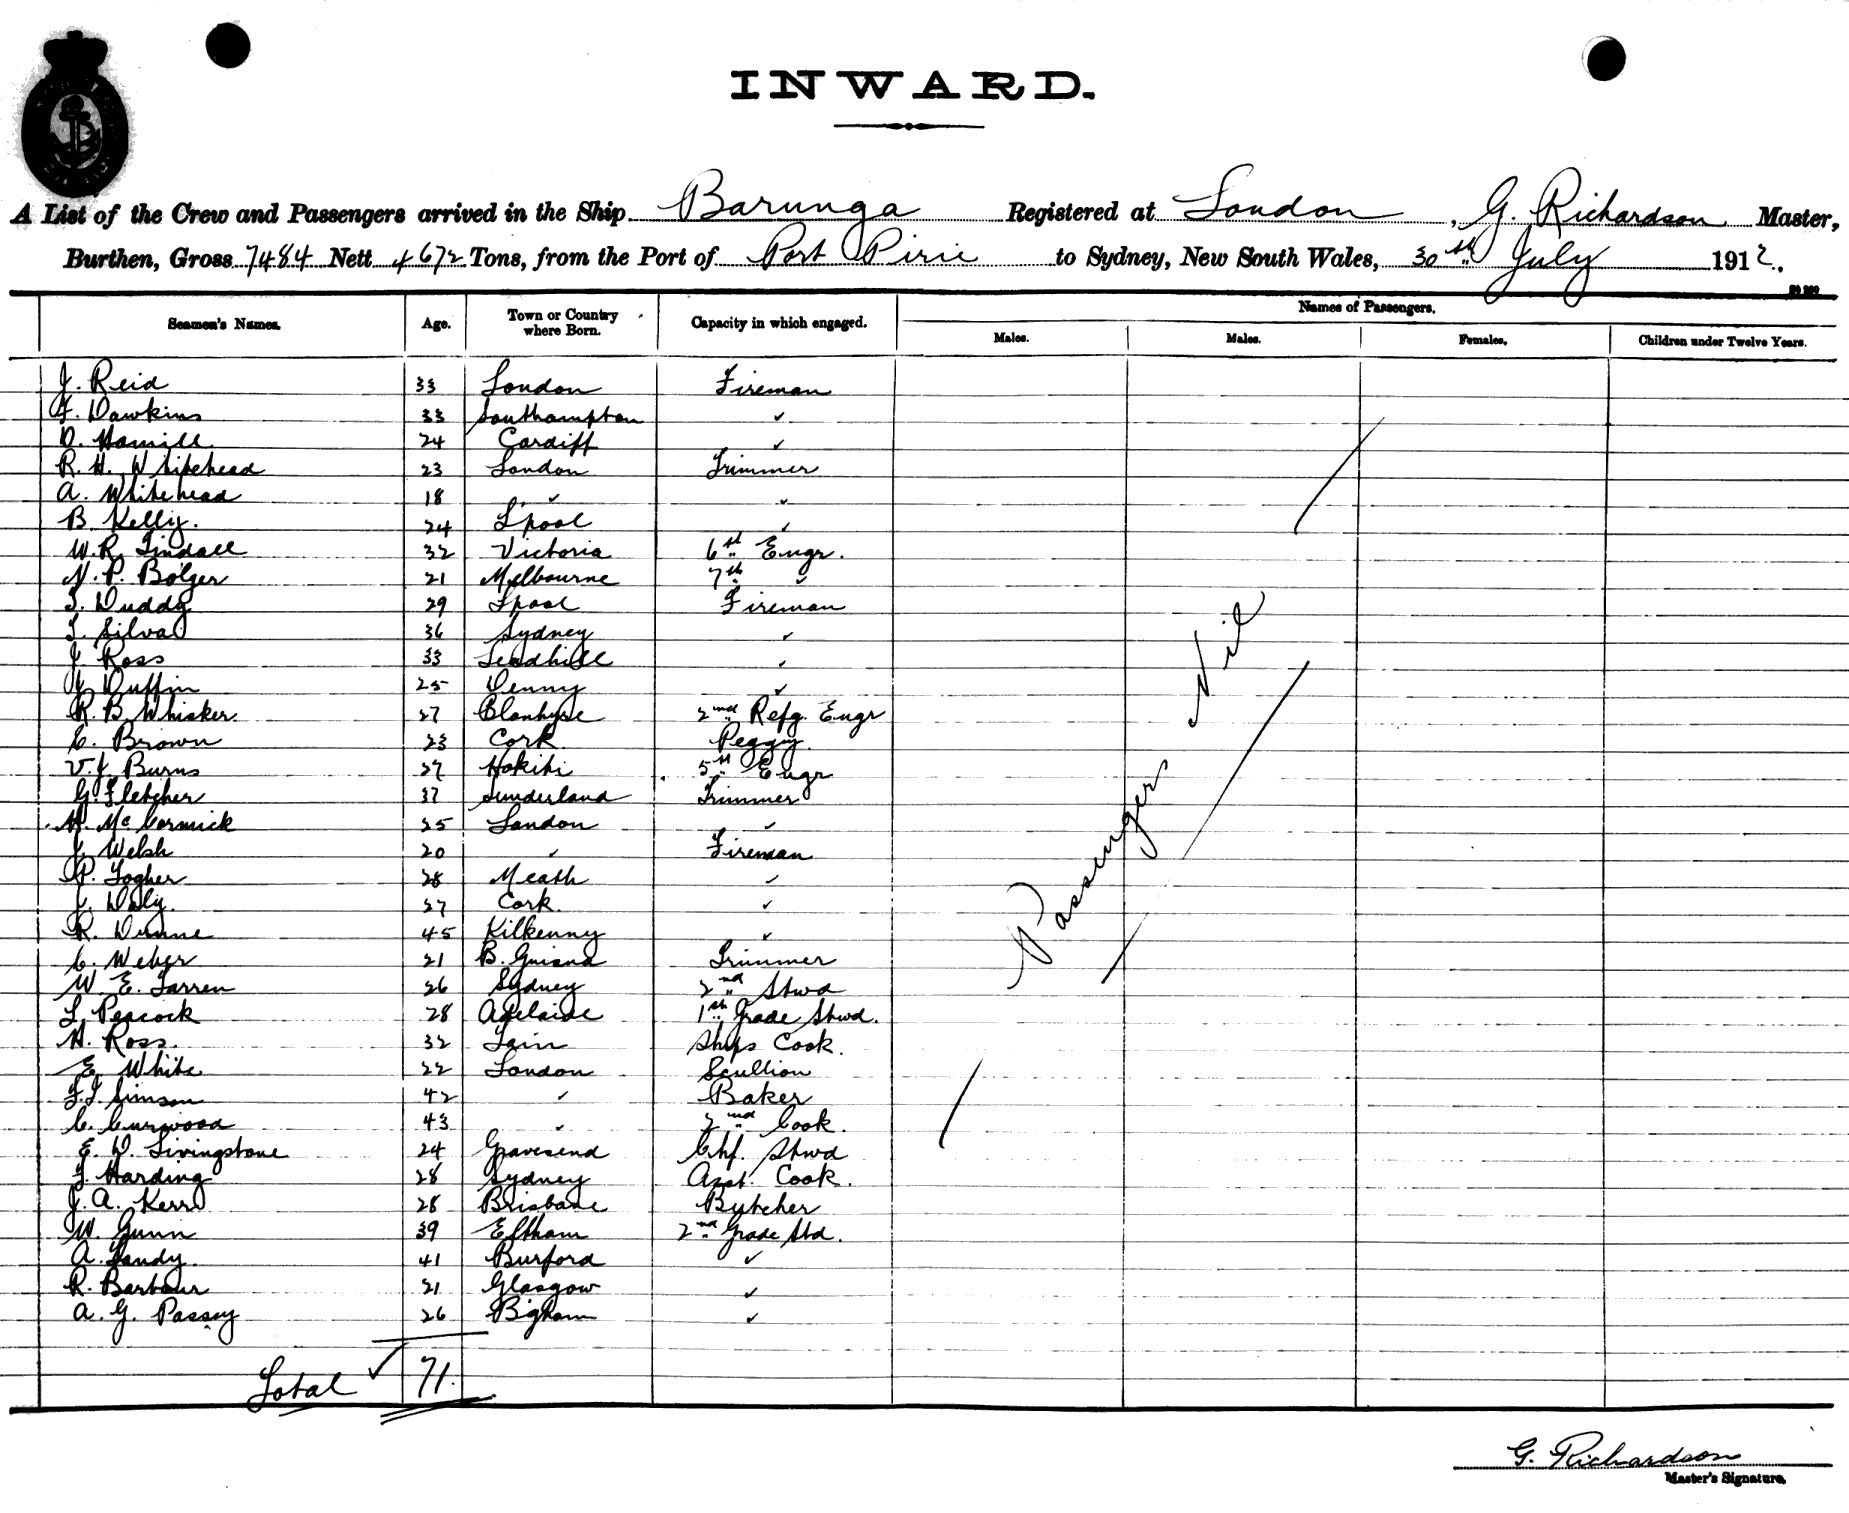 INWARD.
A List of the Crew and Passengers arrived in the Ship Barunga Registered at London, G. Richardson Master,
Burthen, Gross 7484 Nett 4672 Tons, from the Port of Port Pirie to Sydney, New South Wales, 30th July 1912.
Names of Passengers.
Seamen's Names. Age. Town or Country where Born. Capacity in which engaged. Males. Males. Females. Children under Twelve Years.
J. Reid 33 London Fireman
F. Dawkins 33 Southampton ✓
D. Hamill 24 Cardiff ✓
R. H. Whitehead 23 London Trimmer
A. Whitehead 18 ✓ ✓
B. Kelly. 24 L'pool ✓
W. R. Tindall 32 Victoria 6th Engr.
N. P. Bolger 21 Melbourne 7th ✓
T. Duddy 29 L'pool Fireman
T. Silva 36 Sydney ✓
J. Ross 33 Leadhill ✓
J. Duffin 25 Denny ✓
R. B. Whisker 27 2nd Refg. Engr
C. Brown 23 Cork. Peggy.
V. J. Burns 27 Hokiti 5th Engr
G. Fletcher 37 Sunderland Trimmer
H. McCormick 25 London ✓
J. Welsh 20 ✓ Fireman
P. Togher 28 Meath ✓
J. Daly. 27 Cork. ✓
R. Dunne 45 Kilkenny ✓
C. Weber 21 B. Guiana Trimmer
W. E. Tarren 26 Sydney 2nd Stwd
L. Peacock 28 Adelaide 1st Grade Stwd.
H. Ross. 32 Tain Ships Cook.
E. White 22 London Scullion
F. J. Simson 42 ✓ Baker
C. Curwood 43 ✓ 2nd Cook.
E. D. Livingstone 24 Gravesend Chf. Stwd
F. Harding 28 Sydney Asst. Cook.
J. A. Kerr 28 Brisbane Butcher
W. Gunn 39 Eltham 2nd Grade Std.
A. Landy. 41 Burford ✓
R. Barbour 21 Glasgow ✓
A. G. Passey 26 B'gham ✓
Passenger Nil
Total ✓ 71.
G. Richardson
Master's Signature.